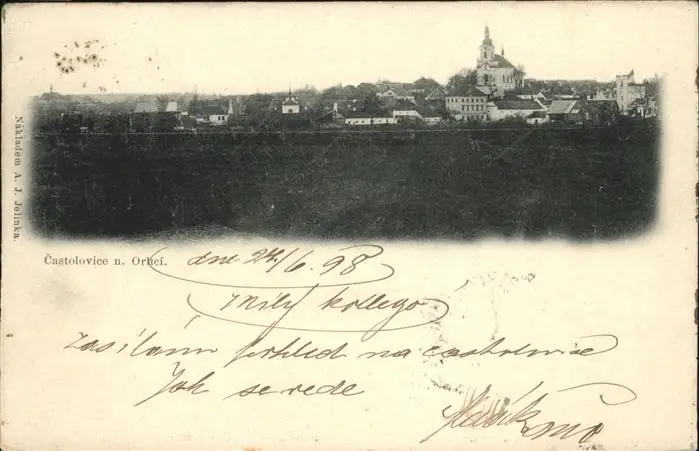 Nákladem A. J. Jelinka.
Častolovice n. Orlicí.
dne 24/6. 98
milý kollego
Zasílám pohled na častolovice
Jak se vede